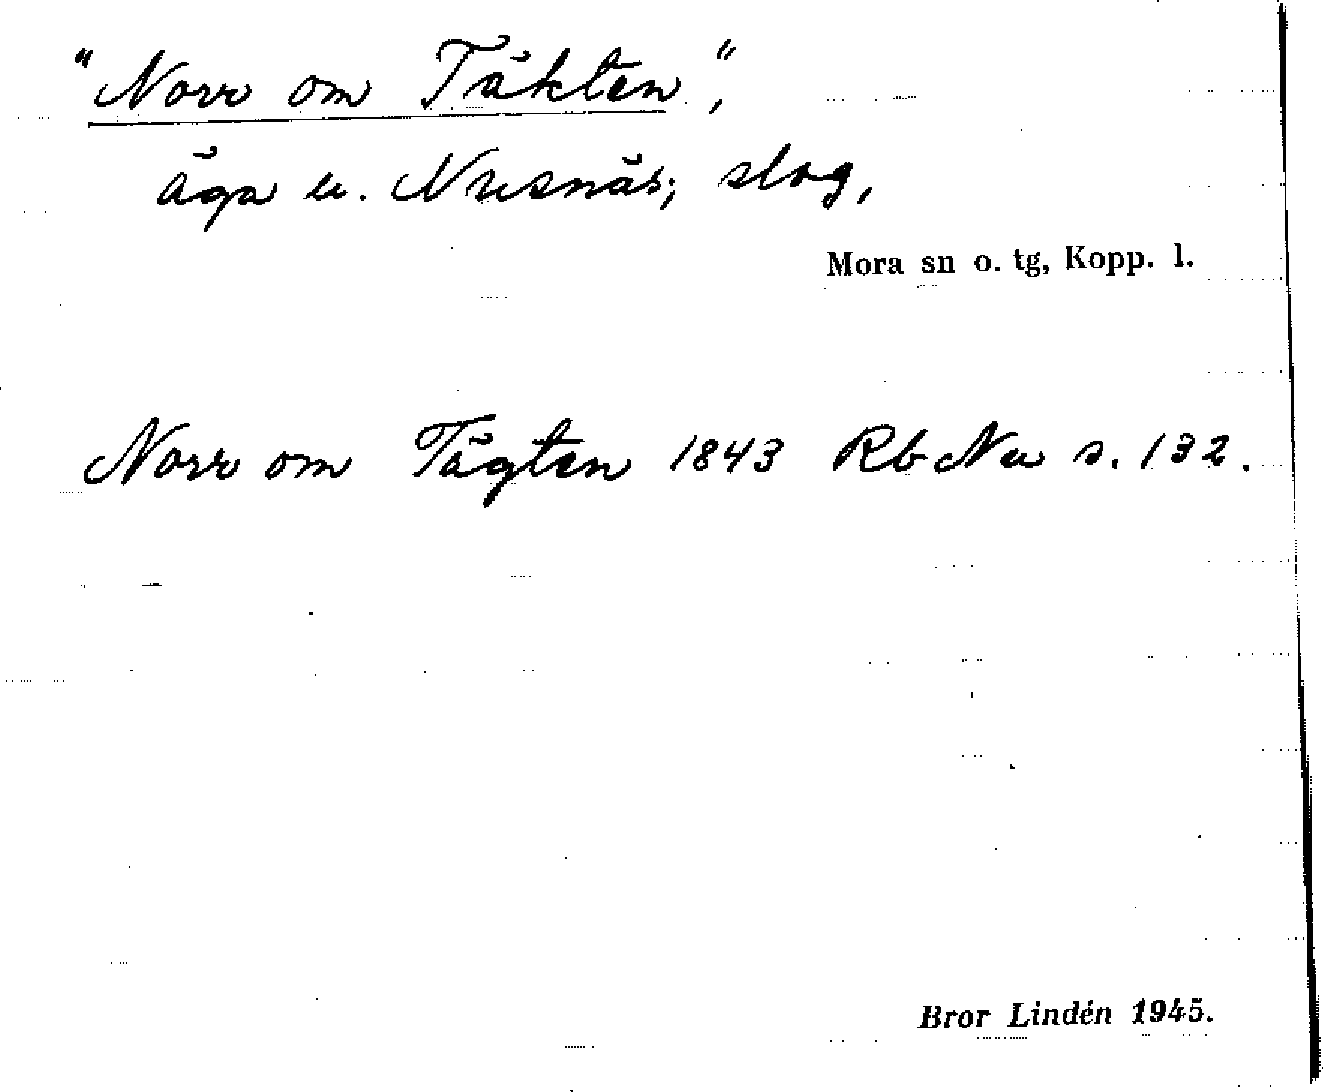 "Norr om Täkten",
äga u. Nusnäs; slog,
Mora sn o. tg, Kopp. l.
Norr om Tägten 1843 Rb Nu s. 132.
Bror Lindén 1945.